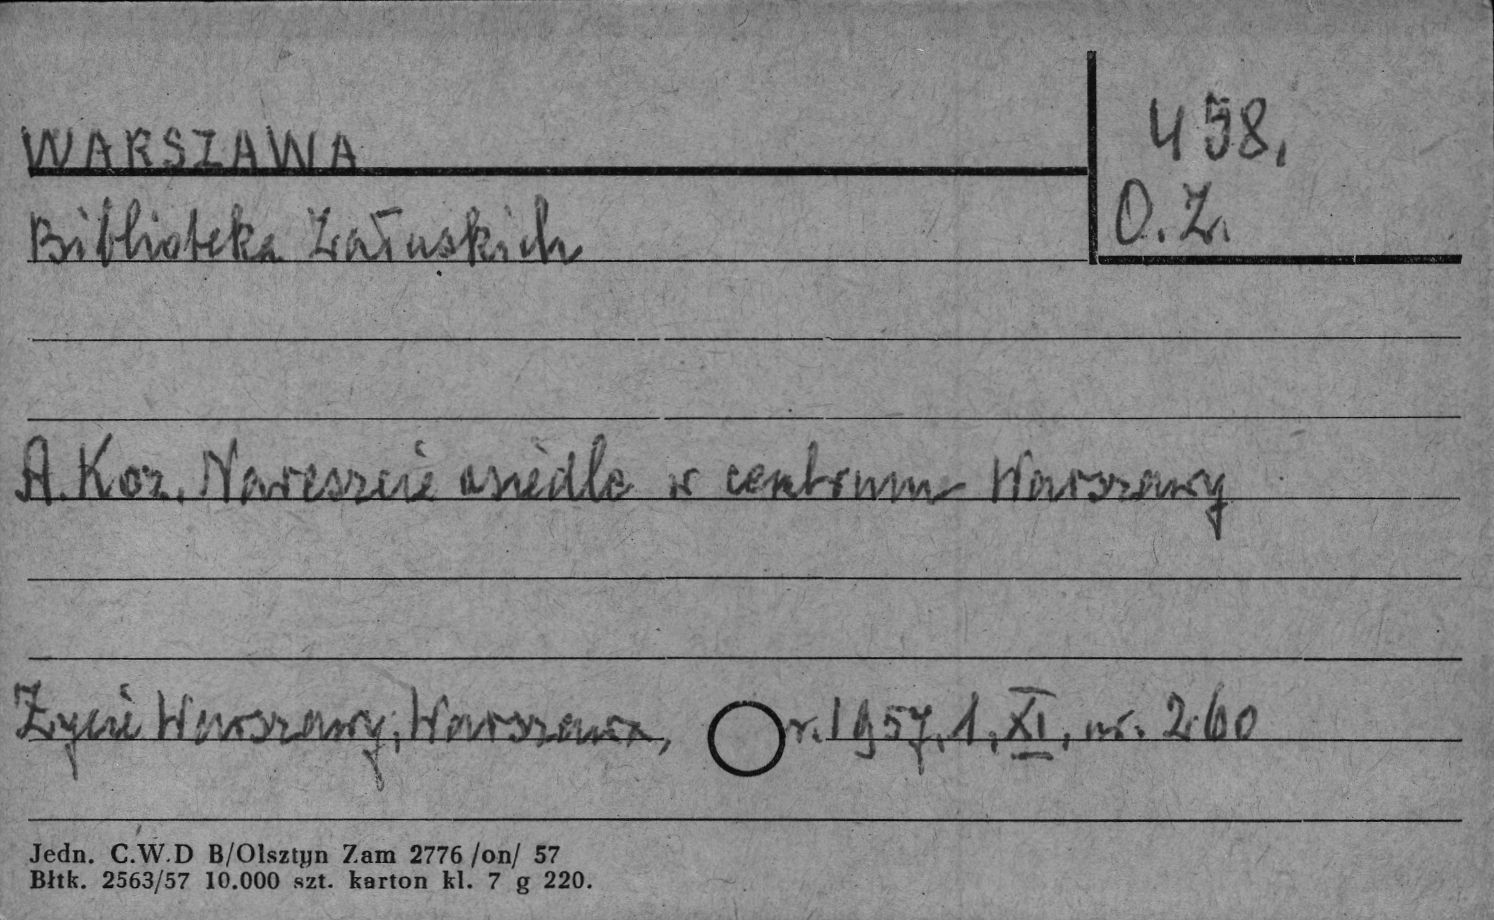 WARSZAWA
458,
O. Z.
Biblioteka Załuskich
A. Koz. Nareszcie osiedle w centrum Warszawy
Życie Warszawy, Warszawa, r. 1957, 1, XI, nr. 260
Jedn. C.W.D B/Olsztyn Zam 2776 /on/ 57
Błtk. 2563/57 10.000 szt. karton kl. 7 g 220.